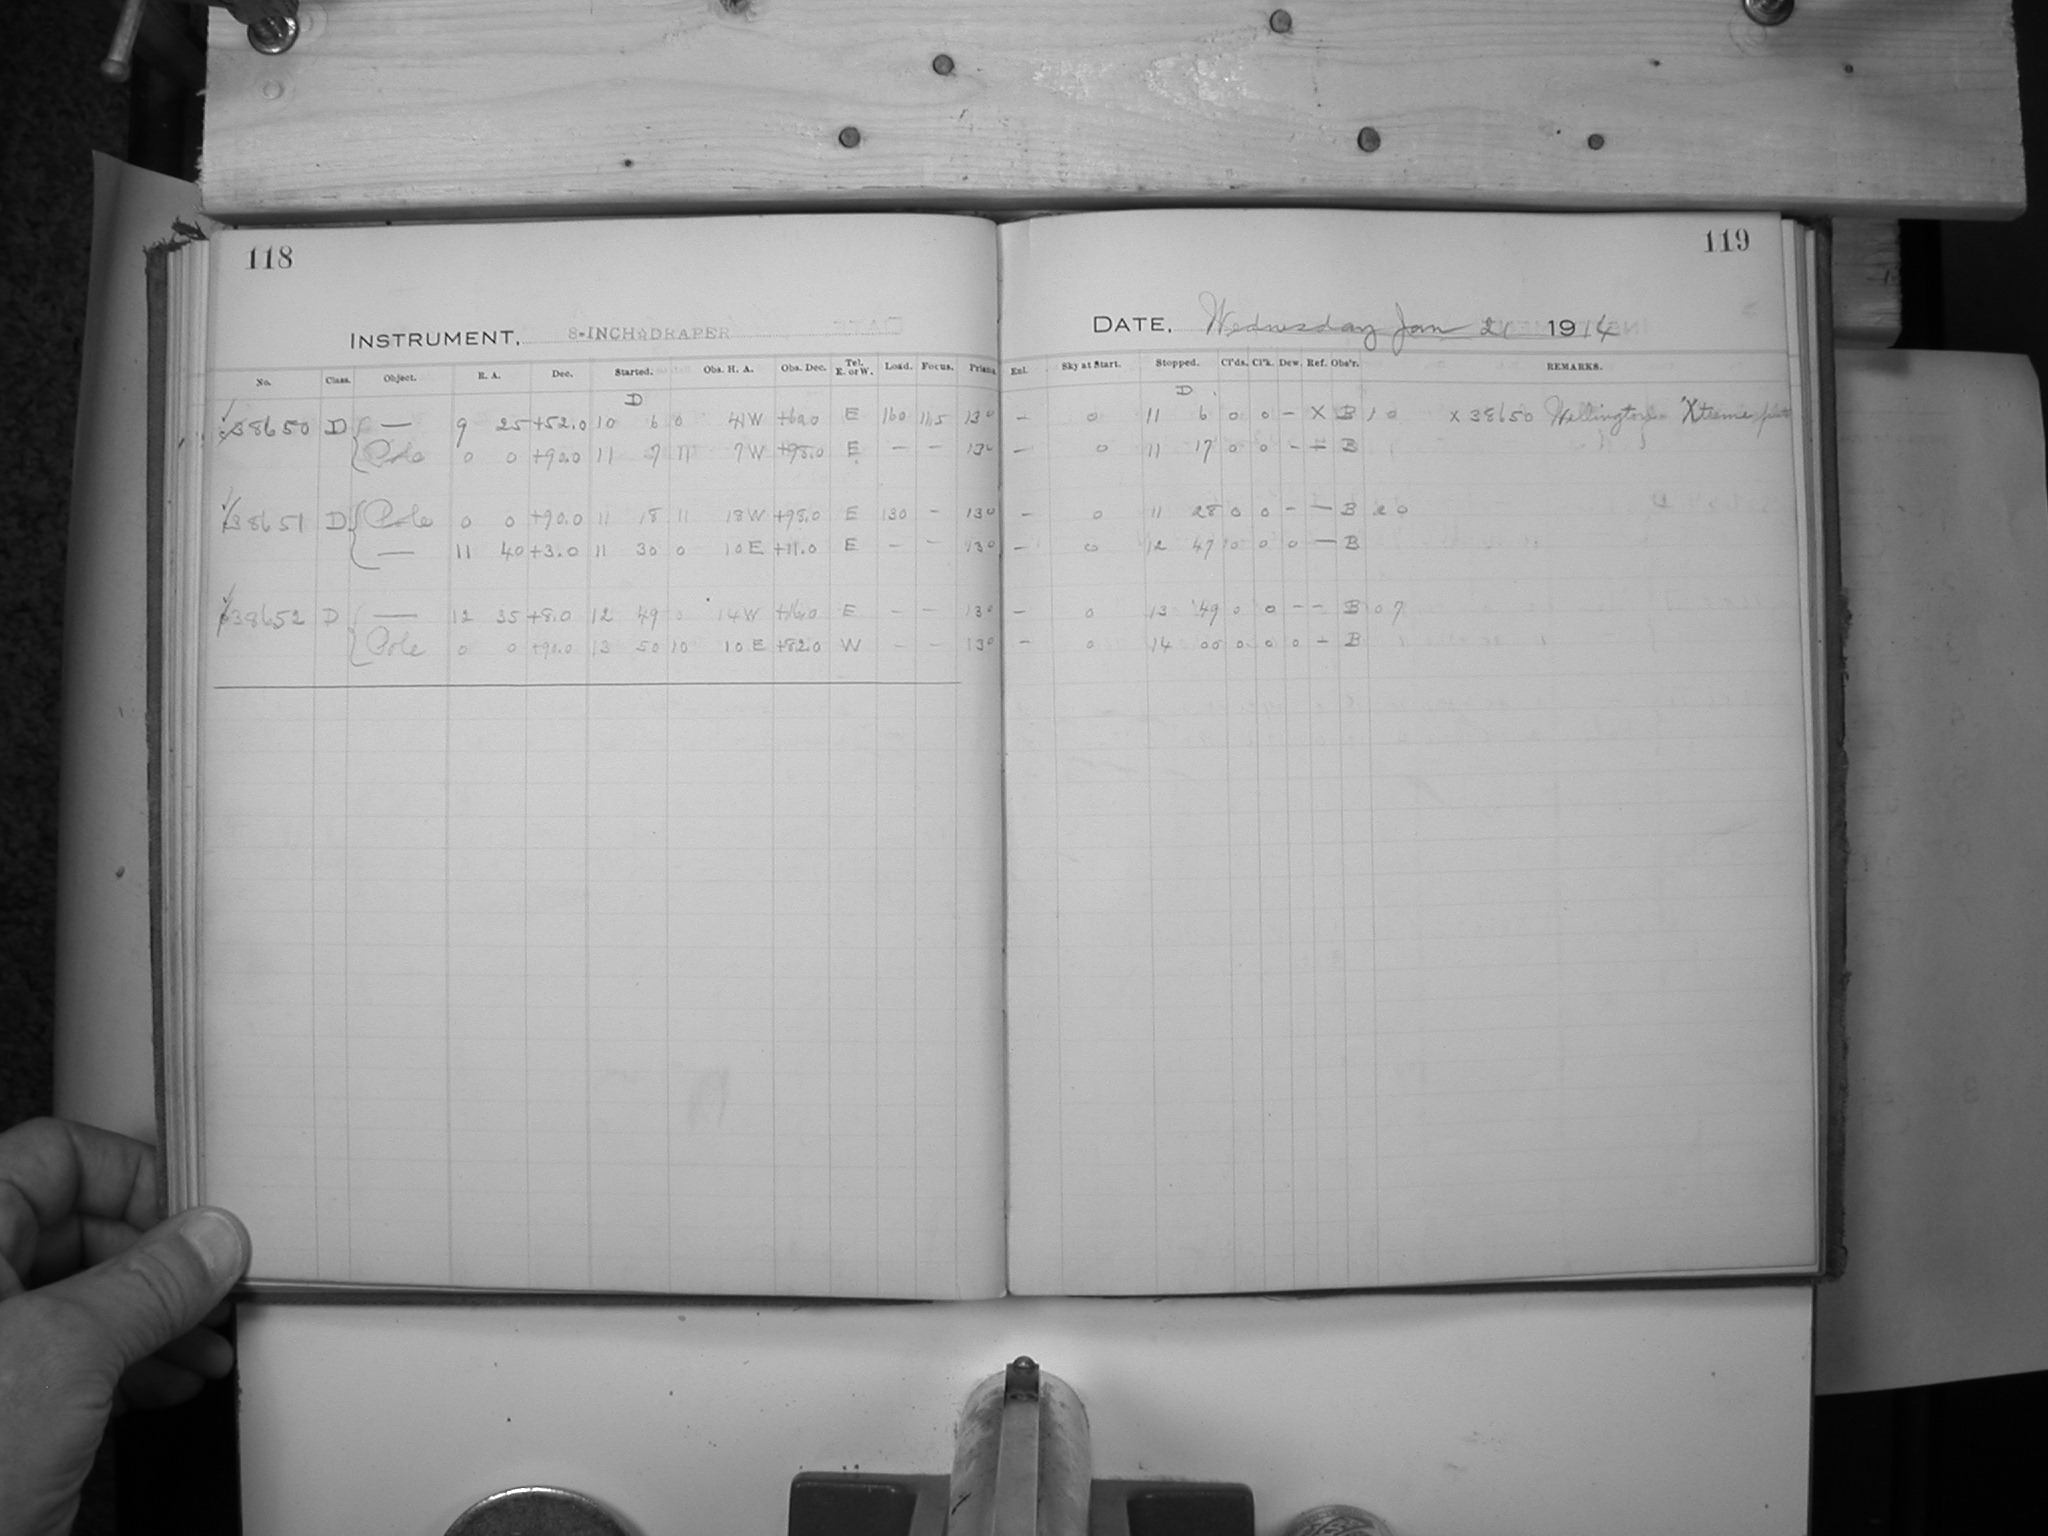 118
INSTRUMENT, 8-INCH DRAPER
No. Class. Object. R. A. Dec. Started. Obs. H. A. Obs. Dec. Tel. E. or W. Load. Focus. Prism.
D
38650 D — 9 25 +52.0 10 6 0 41W +62.0 E 160 11.5 13°
Pole 0 0 +90.0 11 7 11 7W +98.0 E — — 13°
38651 D Pole 0 0 +90.0 11 18 11 18W +98.0 E 130 — 13°
— 11 40 +3.0 11 30 0 10E +11.0 E — — 13°
38652 D — 12 35 +8.0 12 49 0 14W +16.0 E — — 13°
Pole 0 0 +90.0 13 50 10 10E +82.0 W — — 13°
119
DATE, Wednesday Jan 21 1914
Enl. Sky at Start. Stopped. Cl'ds. Cl'k. Dew. Ref. Obs'r. REMARKS.
D
— 0 11 6 0 0 — X B 10 x 38650 Wellington 'Xtreme plate
— 0 11 17 0 0 — — B
— 0 11 28 0 0 — — B 20
— 0 12 47 0 0 0 — B
— 0 13 49 0 0 — — B 07
— 0 14 00 0 0 0 — B